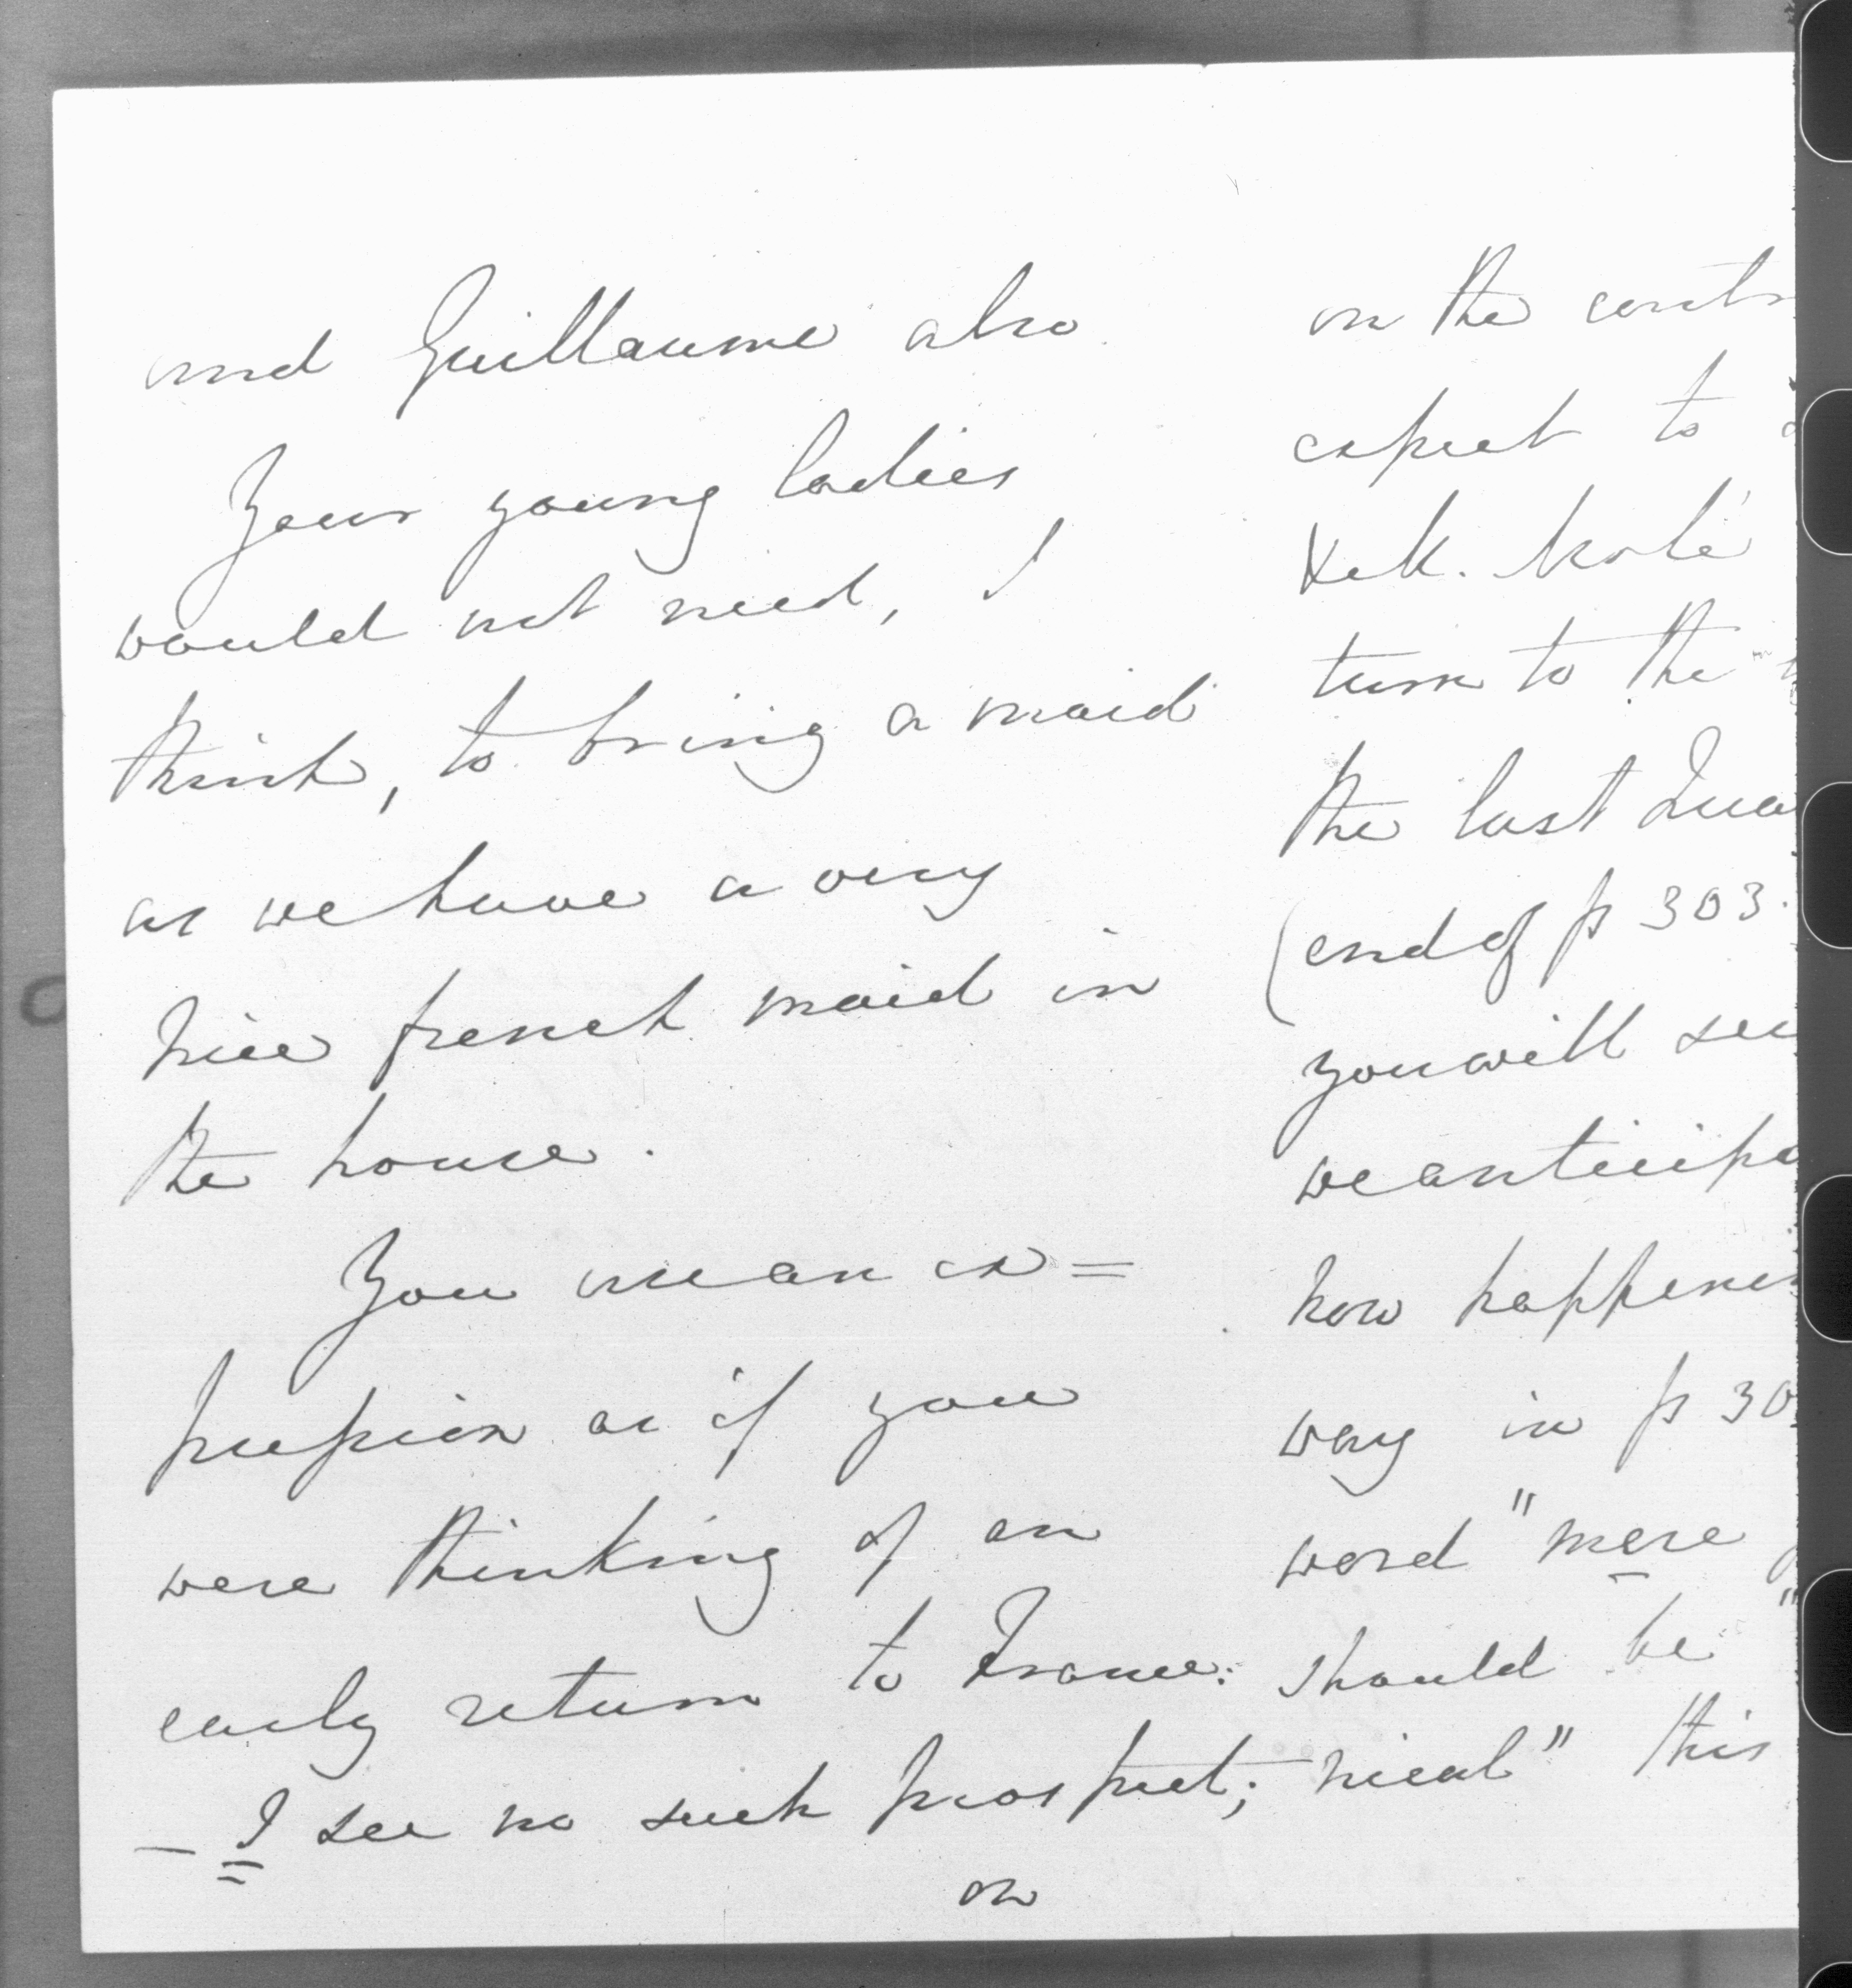 and Guillaume also
Your young ladies
would not need, I
think, to bring a maid
as we have a very
nice french maid in
the house.
You mean ex=
pression as if you
were thinking of an
early return to France:
— I see no such prospect;
on
on the contr
expect to
turn to the
the last Qua
(end of p 303.
you will see
we anticipa
how happene
way in p 30
word "mere
should be "
nical" this